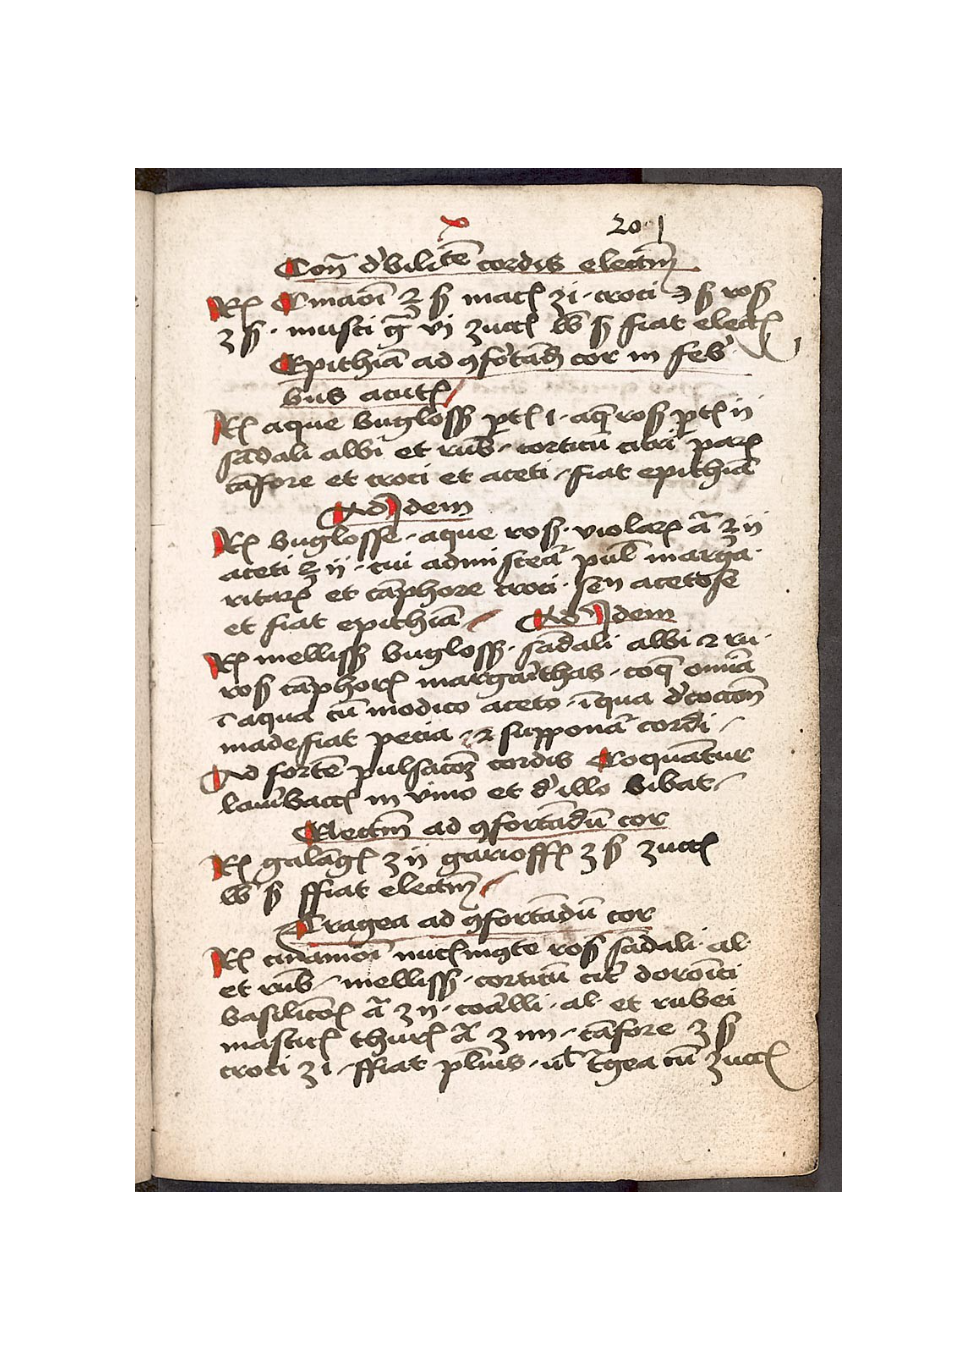 201
Con̄ d'bilitē cordis electm̄
Rx Cinamoī ℥ ß macꝭ ʒ i · croci ℈ ß roß
ʒ ß · musci gr̄ vj zuccꝭ lb̄ ß fiat electꝭ
Epithiā ad ꝯfortād cor in feb'
bus acutꝭ
Rx aque bugloß ꝑtꝭ i · aq̄ roß ꝑtꝭ ii
sādali albi et rub̄ · corticū citri parꝭ
cāfore et croci et aceti · fiat epithiā
Ad Idem
Rx buglosse · aque roß · violarꝭ ā ℥ ii
aceti ℥ ii · cui admisceā pul̄ marga ·
ritarꝭ et cāphore croci · sen acetose
et fiat epithiā Ad Idem
Rx melliß bugloß · sādali albi ⁊ ru ·
roß cāphorꝭ margarithas · coq̄ omīa
ī aqua cū modico aceto · ī qua d'coctōn
madefiat pecia · ⁊ supponāt cordi
Ad fortē pulsacōꝫ cordis Coquātur
lauri baccꝭ in vino et d' illo bibat
Electm̄ ad ꝯfortādū cor
Rx galāgꝭ ʒ ii garioffꝭ ʒ ß zuccꝭ
lb̄ ß ffiat electm̄
Tragea ad ꝯfortādū cor
Rx cinamōi nucꝭ mꝯte roß sādali · al ·
et rub̄ · melliß · corticū cit' doroīci
basiliconꝭ ā ʒ ii · coralli · al · et rubei
masticꝭ thurꝭ ā ʒ iiii · cāfore ʒ ß
croci ʒ i · ffiat pl̄uis · ul̄ t̄gea cū zuccꝭ